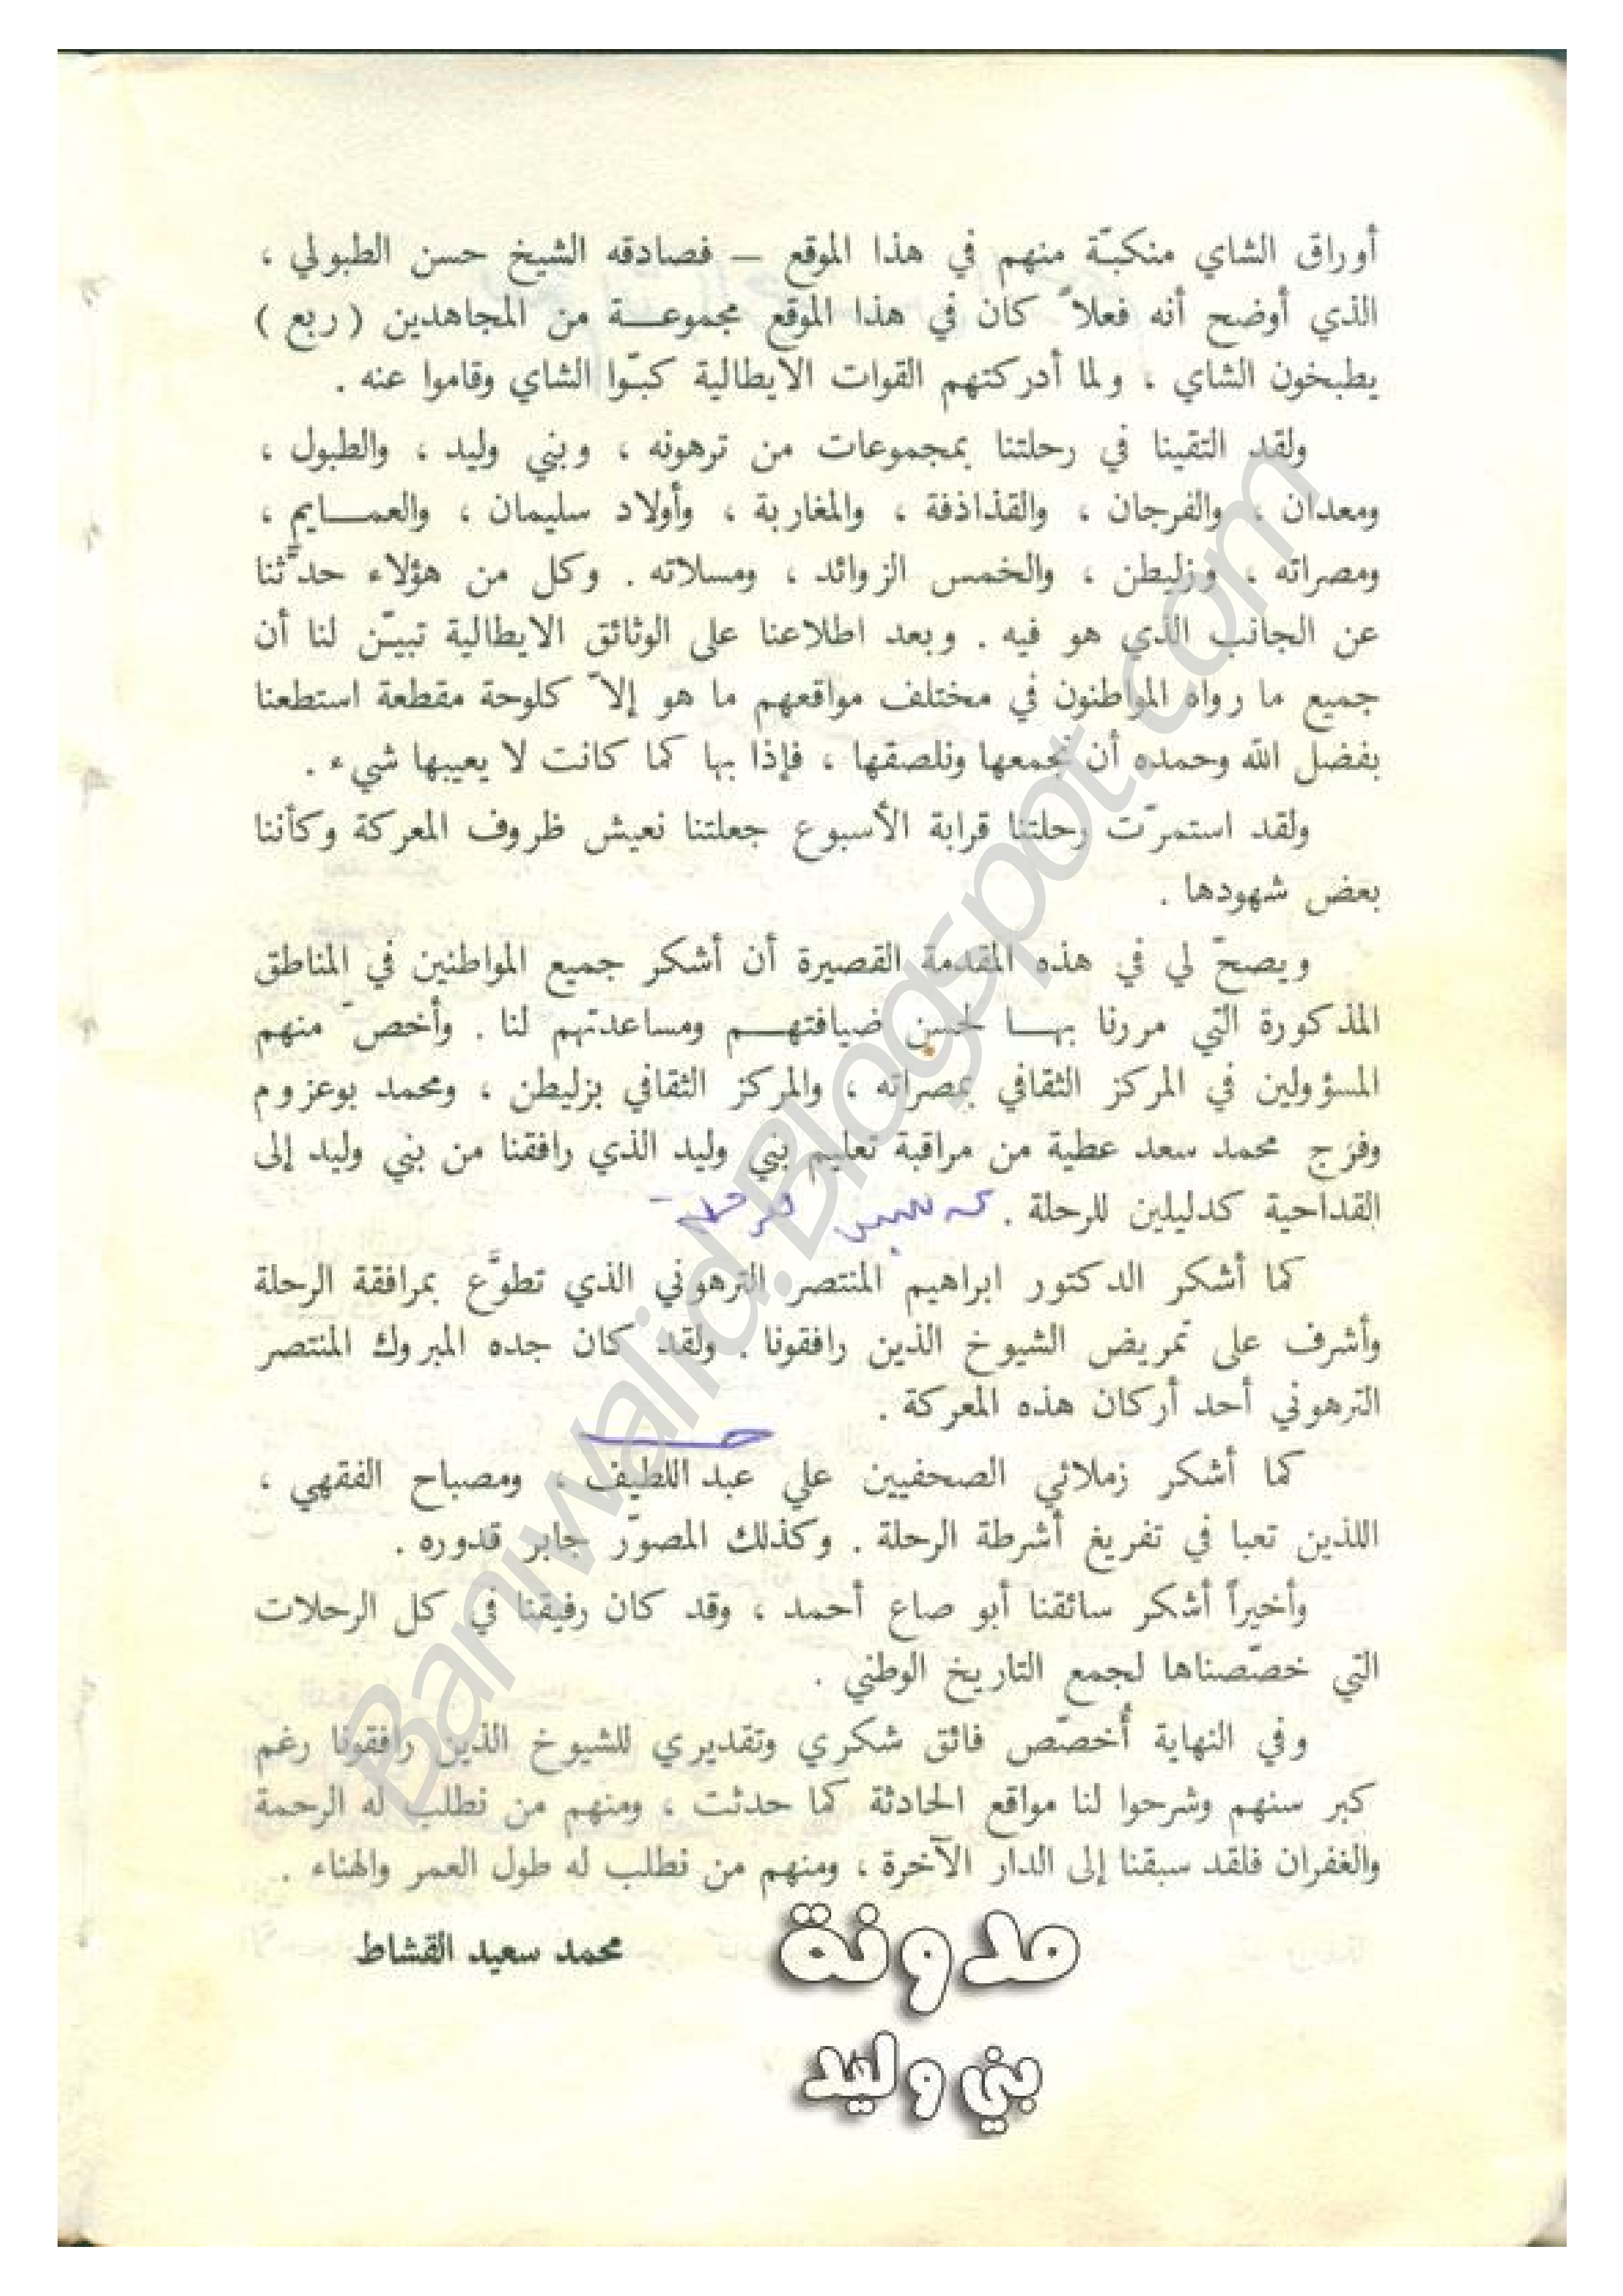 أوراق الشاي منكبّة منهم في هذا الموقع — فصادقه الشيخ حسن الطبولي ،
الذي أوضح أنه فعلاً كان في هذا الموقع مجموعـــة من المجاهدين ( ربع )
يطبخون الشاي ، ولما أدركتهم القوات الايطالية كبّوا الشاي وقاموا عنه .
ولقد التقينا في رحلتنا بمجموعات من ترهونه ، وبني وليد ، والطبول ،
ومعدان ، والفرجان ، والقذاذفة ، والمغاربة ، وأولاد سليمان ، والعمـــايم ،
ومصراته ، وزليطن ، والخمس الزوائد ، ومسلاته . وكل من هؤلاء حدّثنا
عن الجانب الذي هو فيه . وبعد اطلاعنا على الوثائق الايطالية تبيّن لنا أن
جميع ما رواه المواطنون في مختلف مواقعهم ما هو إلاّ كلوحة مقطعة استطعنا
بفضل الله وحمده أن نجمعها ونلصقها ، فإذا بها كما كانت لا يعيبها شيء .
ولقد استمرّت رحلتنا قرابة الأسبوع جعلتنا نعيش ظروف المعركة وكأننا
بعض شهودها .
ويصحّ لي في هذه المقدمة القصيرة أن أشكر جميع المواطنين في المناطق
المذكورة التي مررنا بهـــا لحسن ضيافتهـــم ومساعدتهم لنا . وأخصّ منهم
المسؤولين في المركز الثقافي بمصراته ، والمركز الثقافي بزليطن ، ومحمد بوعزوم
وفرج محمد سعد عطية من مراقبة تعليم بني وليد الذي رافقنا من بني وليد إلى
القداحية كدليلين للرحلة .
كما أشكر الدكتور ابراهيم المنتصر الترهوني الذي تطوّع بمرافقة الرحلة
وأشرف على تمريض الشيوخ الذين رافقونا . ولقد كان جده المبروك المنتصر
الترهوني أحد أركان هذه المعركة .
كما أشكر زملائي الصحفيين علي عبد اللطيف ، ومصباح الفقهي ،
اللذين تعبا في تفريغ أشرطة الرحلة . وكذلك المصوّر جابر قدوره .
وأخيراً أشكر سائقنا أبو صاع أحمد ، وقد كان رفيقنا في كل الرحلات
التي خصّصناها لجمع التاريخ الوطني .
وفي النهاية أُخصّص فائق شكري وتقديري للشيوخ الذين رافقونا رغم
كبر سنهم وشرحوا لنا مواقع الحادثة كما حدثت ، ومنهم من نطلب له الرحمة
والغفران فلقد سبقنا إلى الدار الآخرة ، ومنهم من نطلب له طول العمر والهناء .
محمد سعيد القشاط
مدونة
بني وليد
Baniwalid.Blogspot.com